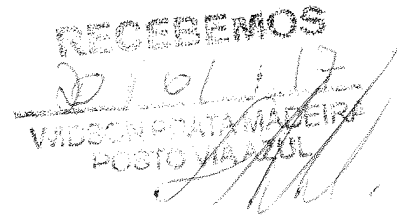 RECEBEMOS
20 / 01 / 17
WIDSON PRATA MADEIRA
POSTO VIA AZUL